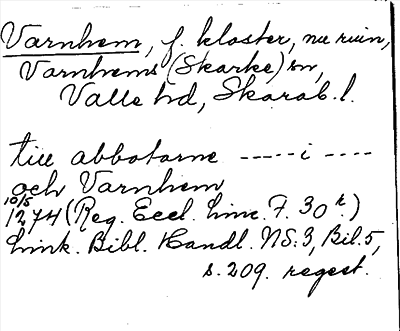 Varnhem, f. kloster, nu ruin,
Varnhems (Skarke) sn,
Valle hd, Skarab. l.
till abbotarne ----- i ----
och Varnhem
10/5
1274 (Reg. Eccl. Linc. F. 30 r.)
Link. Bibl. Handl. NS. 3, Bil. 5,
s. 209. regest.